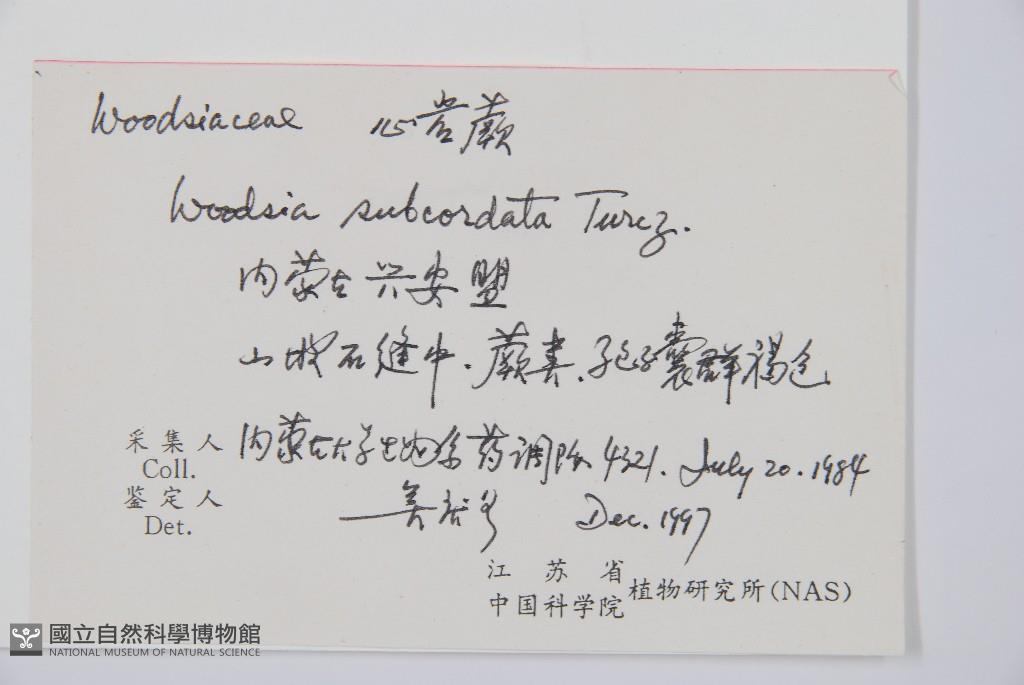 Woodsiaceae 心岩蕨
Woodsia subcordata Turcz.
内蒙古兴安盟
山坡石缝中.蕨类、孢子囊群褐色
采集人 内蒙古大学生地系药调队 4321. July 20. 1984
Coll.
鉴定人 Dec. 1997
Det.
江苏省
中国科学院
植物研究所(NAS)
國立自然科學博物館
NATIONAL MUSEUM OF NATURAL SCIENCE